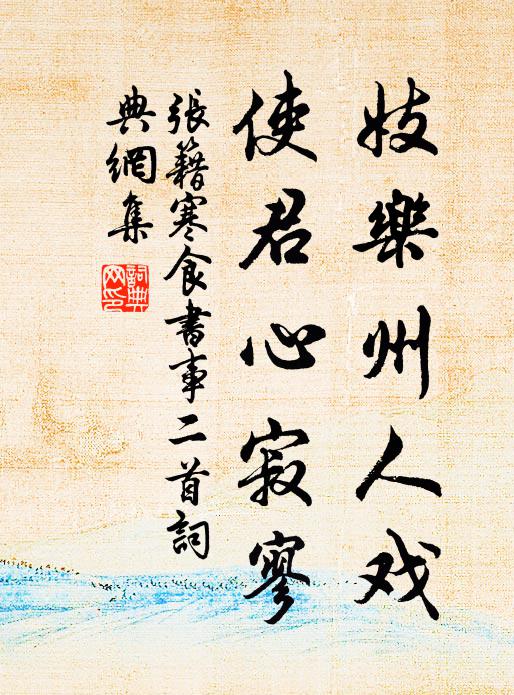 妓樂州人戏
使君心寂寥
張籍寒食書事二首詞
典網集
詞典网印